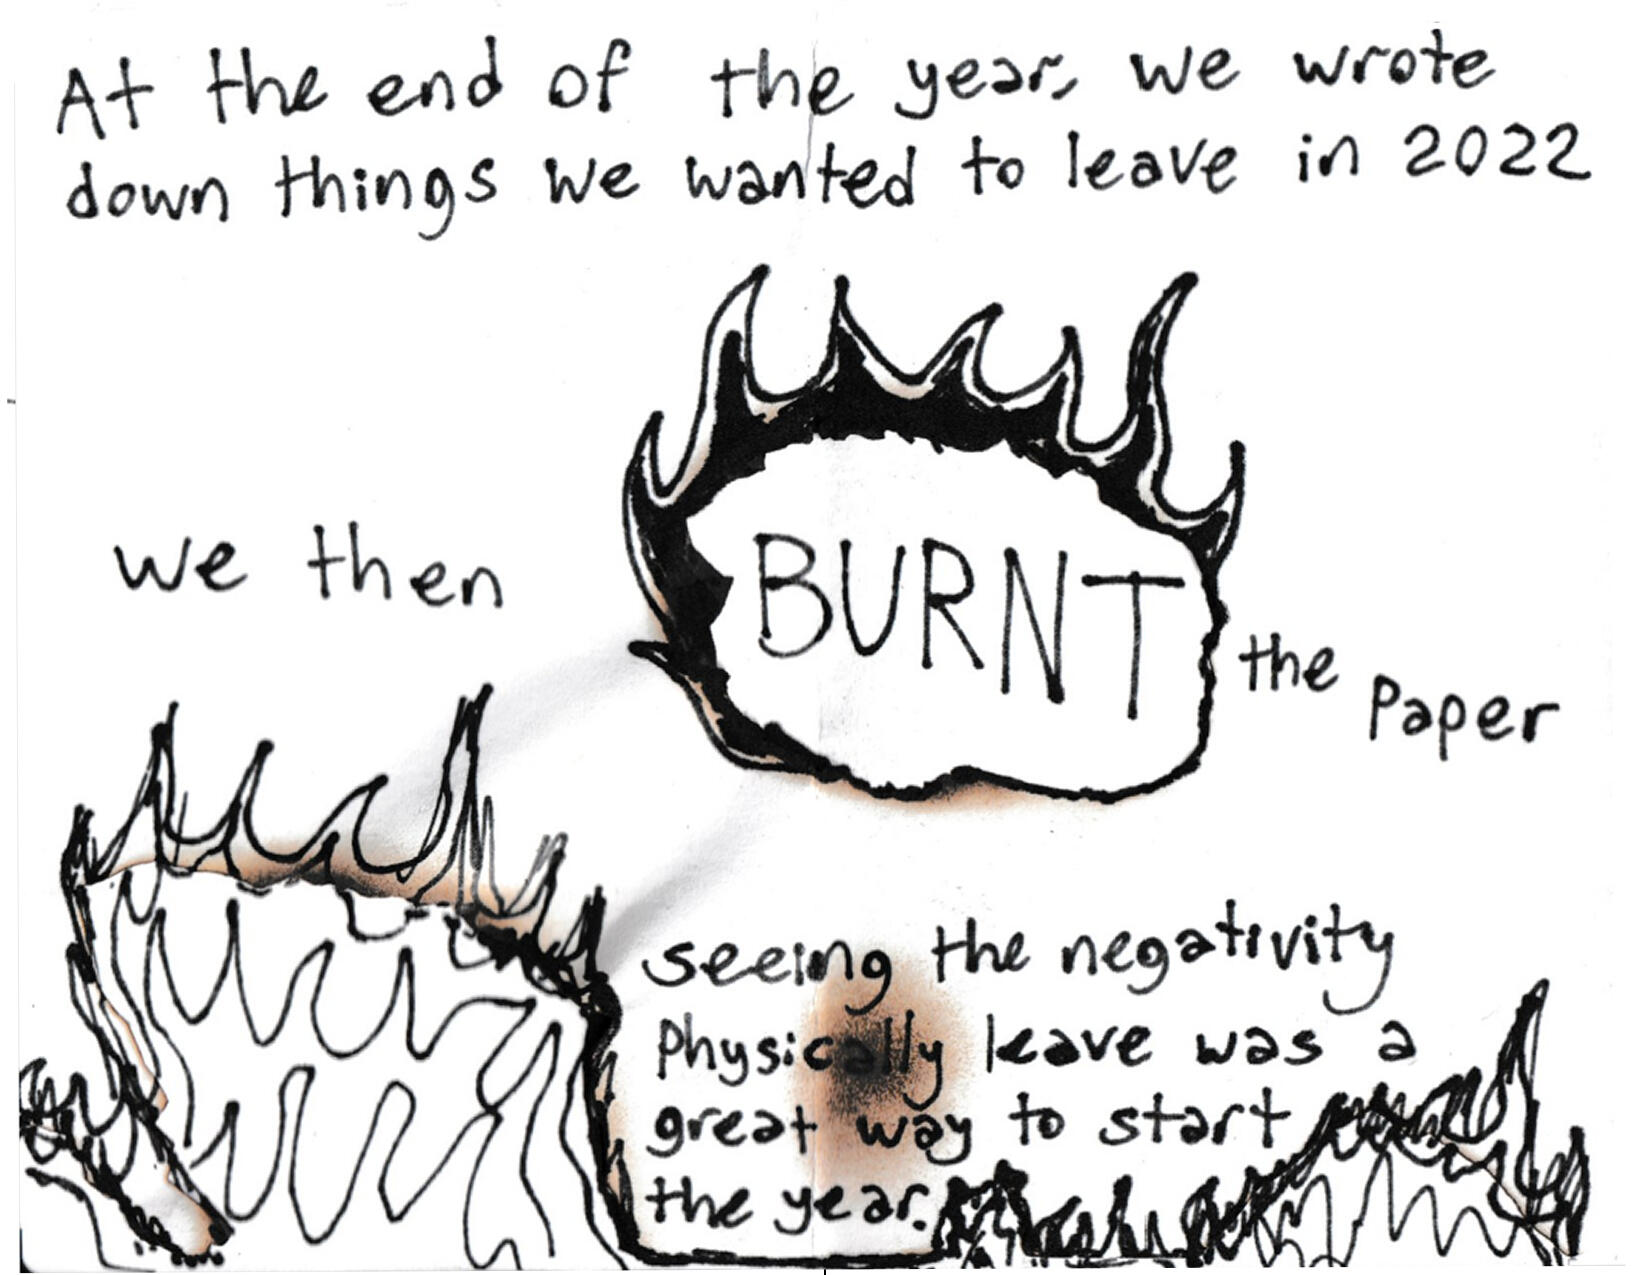 At the end of the year, we wrote
down things we wanted to leave in 2022
we then BURNT the paper
seeing the negativity
physically leave was a
great way to start
the year.